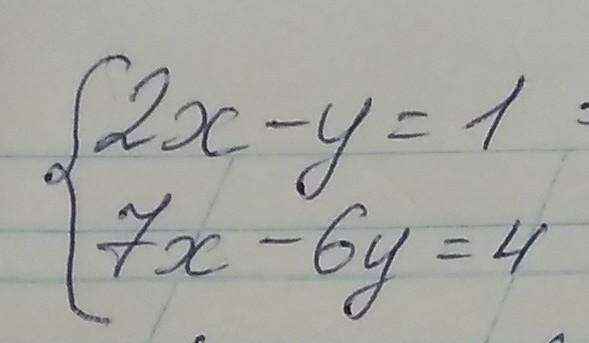 2x - y = 1
7x - 6y = 4